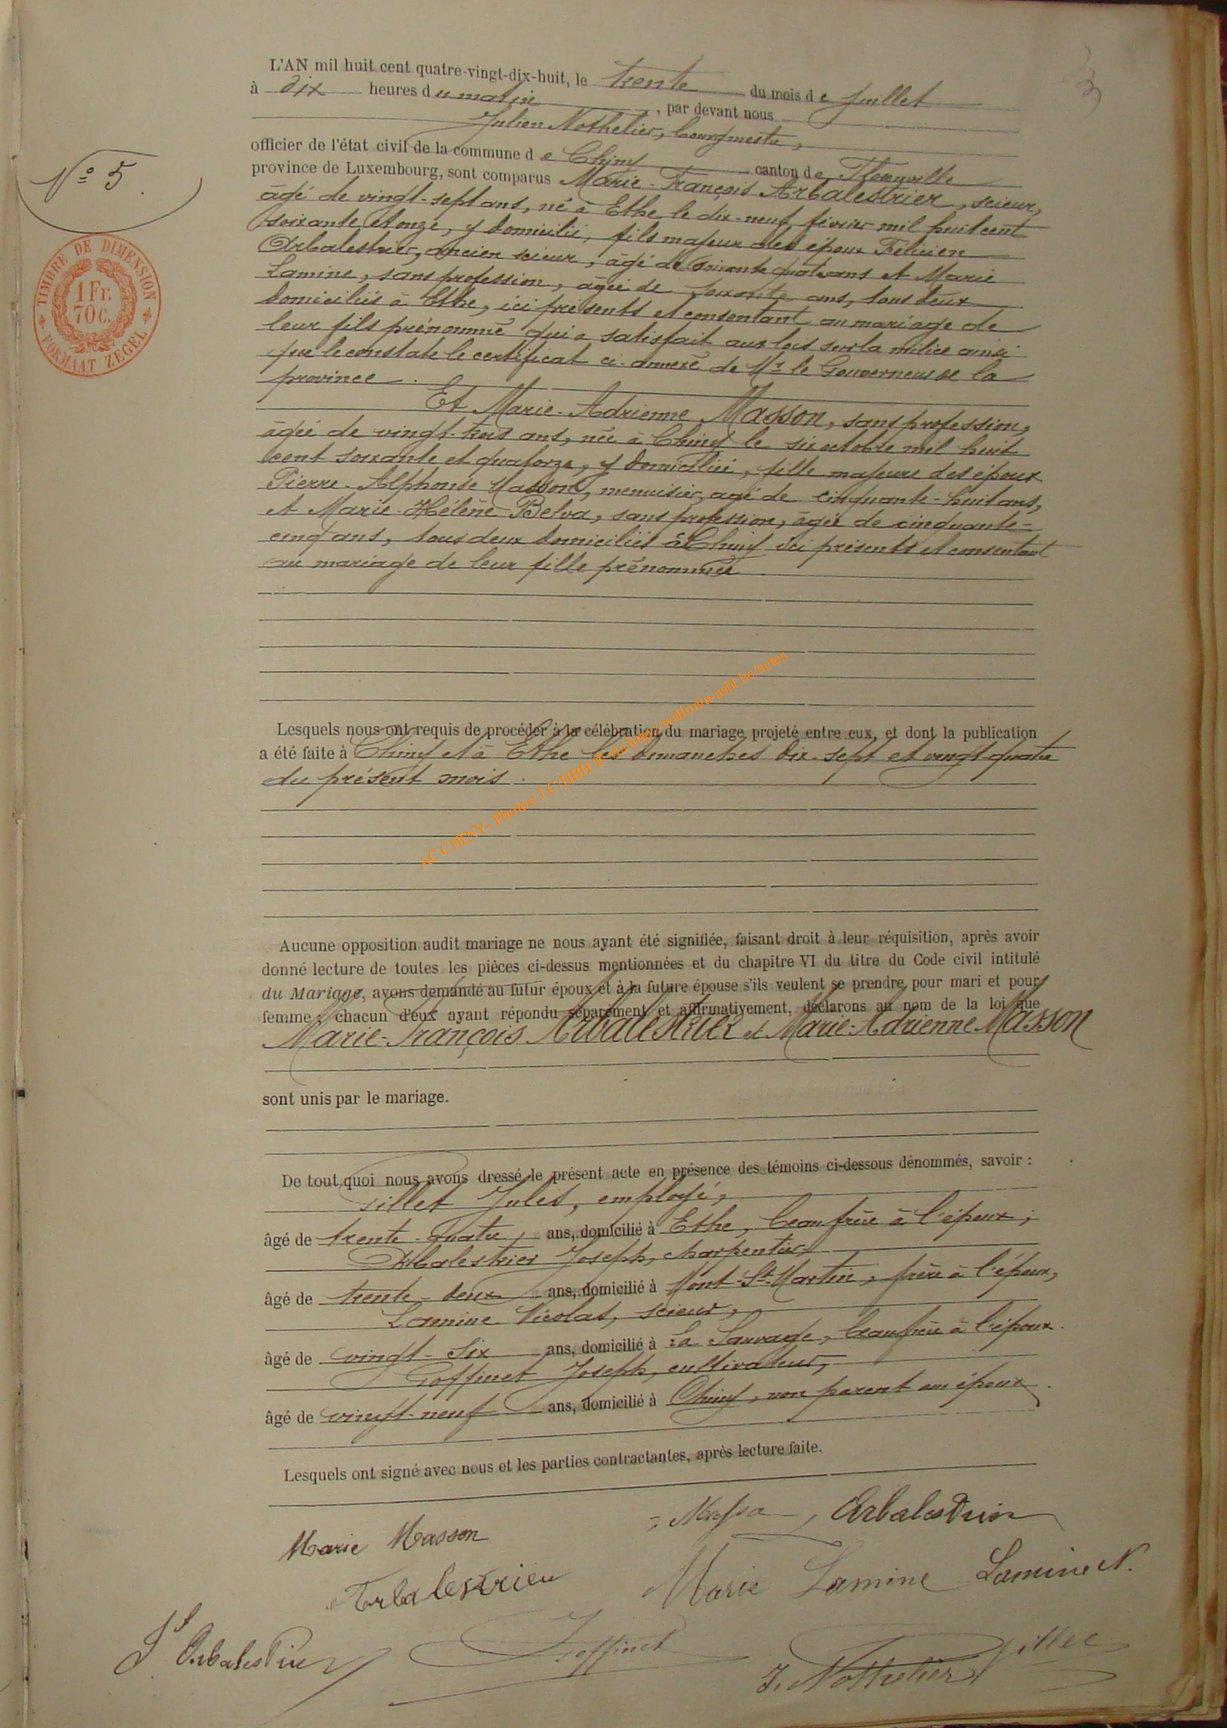 N° 5.
TIMBRE DE DIMENSION
1 Fr. 70 c.
FORMAAT ZEGEL
3
L'AN mil huit cent quatre-vingt-dix-huit, le trente du mois de juillet
à dix heures du matin, par devant nous
Julien Nothelier, bourgmestre,
officier de l'état civil de la commune de Chiny canton de Florenville
province de Luxembourg, sont comparus Marie-François Arbalestrier, scieur,
âgé de vingt-sept ans, né à Ethe le dix-neuf février mil huit cent
soixante et onze, y domicilié, fils majeur des époux Félicien
Arbalestrier, ancien scieur, âgé de soixante quatre ans et Marie
Lamine, sans profession, âgée de soixante ans, tous deux
domiciliés à Ethe, ici présents et consentant au mariage de
leur fils prénommé qui a satisfait aux lois sur la milice ainsi
que le constate le certificat ci-annexé de Mr le Gouverneur de la
province.
Et Marie-Adrienne Masson, sans profession,
âgée de vingt-trois ans, née à Chiny le six octobre mil huit
cent soixante et quatorze, y domiciliée, fille majeure des époux
Pierre-Alphonse Masson, menuisier, âgé de cinquante-huit ans,
et Marie-Hélène Belva, sans profession, âgée de cinquante-
cinq ans, tous deux domiciliés à Chiny ici présents et consentant
au mariage de leur fille prénommée.
Lesquels nous ont requis de procéder à la célébration du mariage projeté entre eux, et dont la publication
a été faite à Chiny et à Ethe les dimanches dix-sept et vingt-quatre
du présent mois.
Aucune opposition audit mariage ne nous ayant été signifiée, faisant droit à leur réquisition, après avoir
donné lecture de toutes les pièces ci-dessus mentionnées et du chapitre VI du titre du Code civil intitulé
du Mariage, avons demandé au futur époux et à la future épouse s'ils veulent se prendre pour mari et pour
femme; chacun d'eux ayant répondu séparément et affirmativement, déclarons au nom de la loi que
Marie-François Arbalestrier et Marie-Adrienne Masson
sont unis par le mariage.
De tout quoi nous avons dressé le présent acte en présence des témoins ci-dessous dénommés, savoir :
Gillet Jules, employé,
âgé de trente-quatre ans, domicilié à Ethe, beau frère à l'époux,
Arbalestrier Joseph, charpentier,
âgé de trente-deux ans, domicilié à Mont-St-Martin, frère à l'époux,
Lamine Nicolas, scieur,
âgé de vingt-six ans, domicilié à La Sauvage, beau frère à l'époux.
Goffinet Joseph, cultivateur,
âgé de vingt-neuf ans, domicilié à Chiny, non parent aux époux.
Lesquels ont signé avec nous et les parties contractantes, après lecture faite.
Masson, Arbalestrier
Marie Masson
Arbalestrier
Marie Lamine Lamine N.
Jh Arbalestrier
Goffinet
Gillet
J. Nothelier